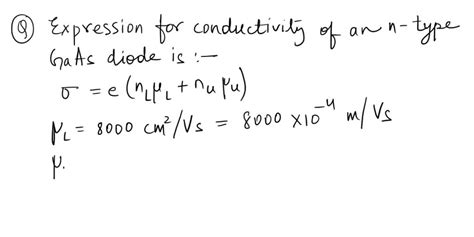 Q Expression for conductivity of an n-type
GaAs diode is :-
σ = e (n_L μ_L + n_u μ_u)
μ_L = 8000 cm²/Vs = 8000 × 10⁻⁴ m/Vs
μ.